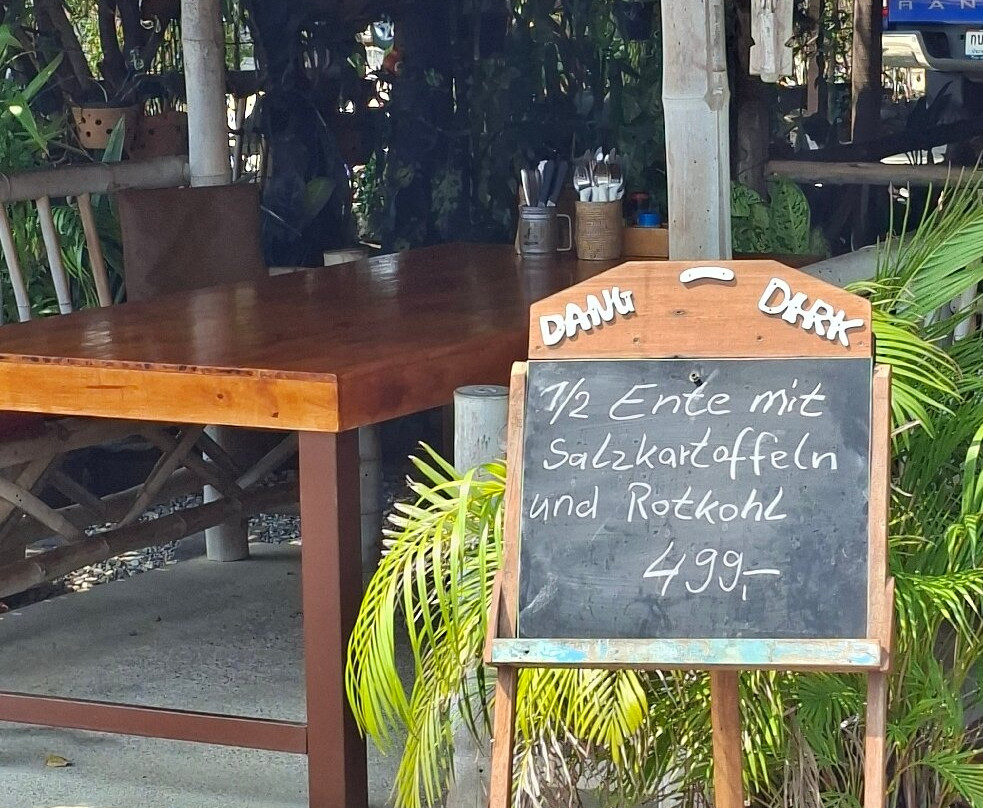 DANG - DIRK
1/2 Ente mit
Salzkartoffeln
und Rotkohl
499,-